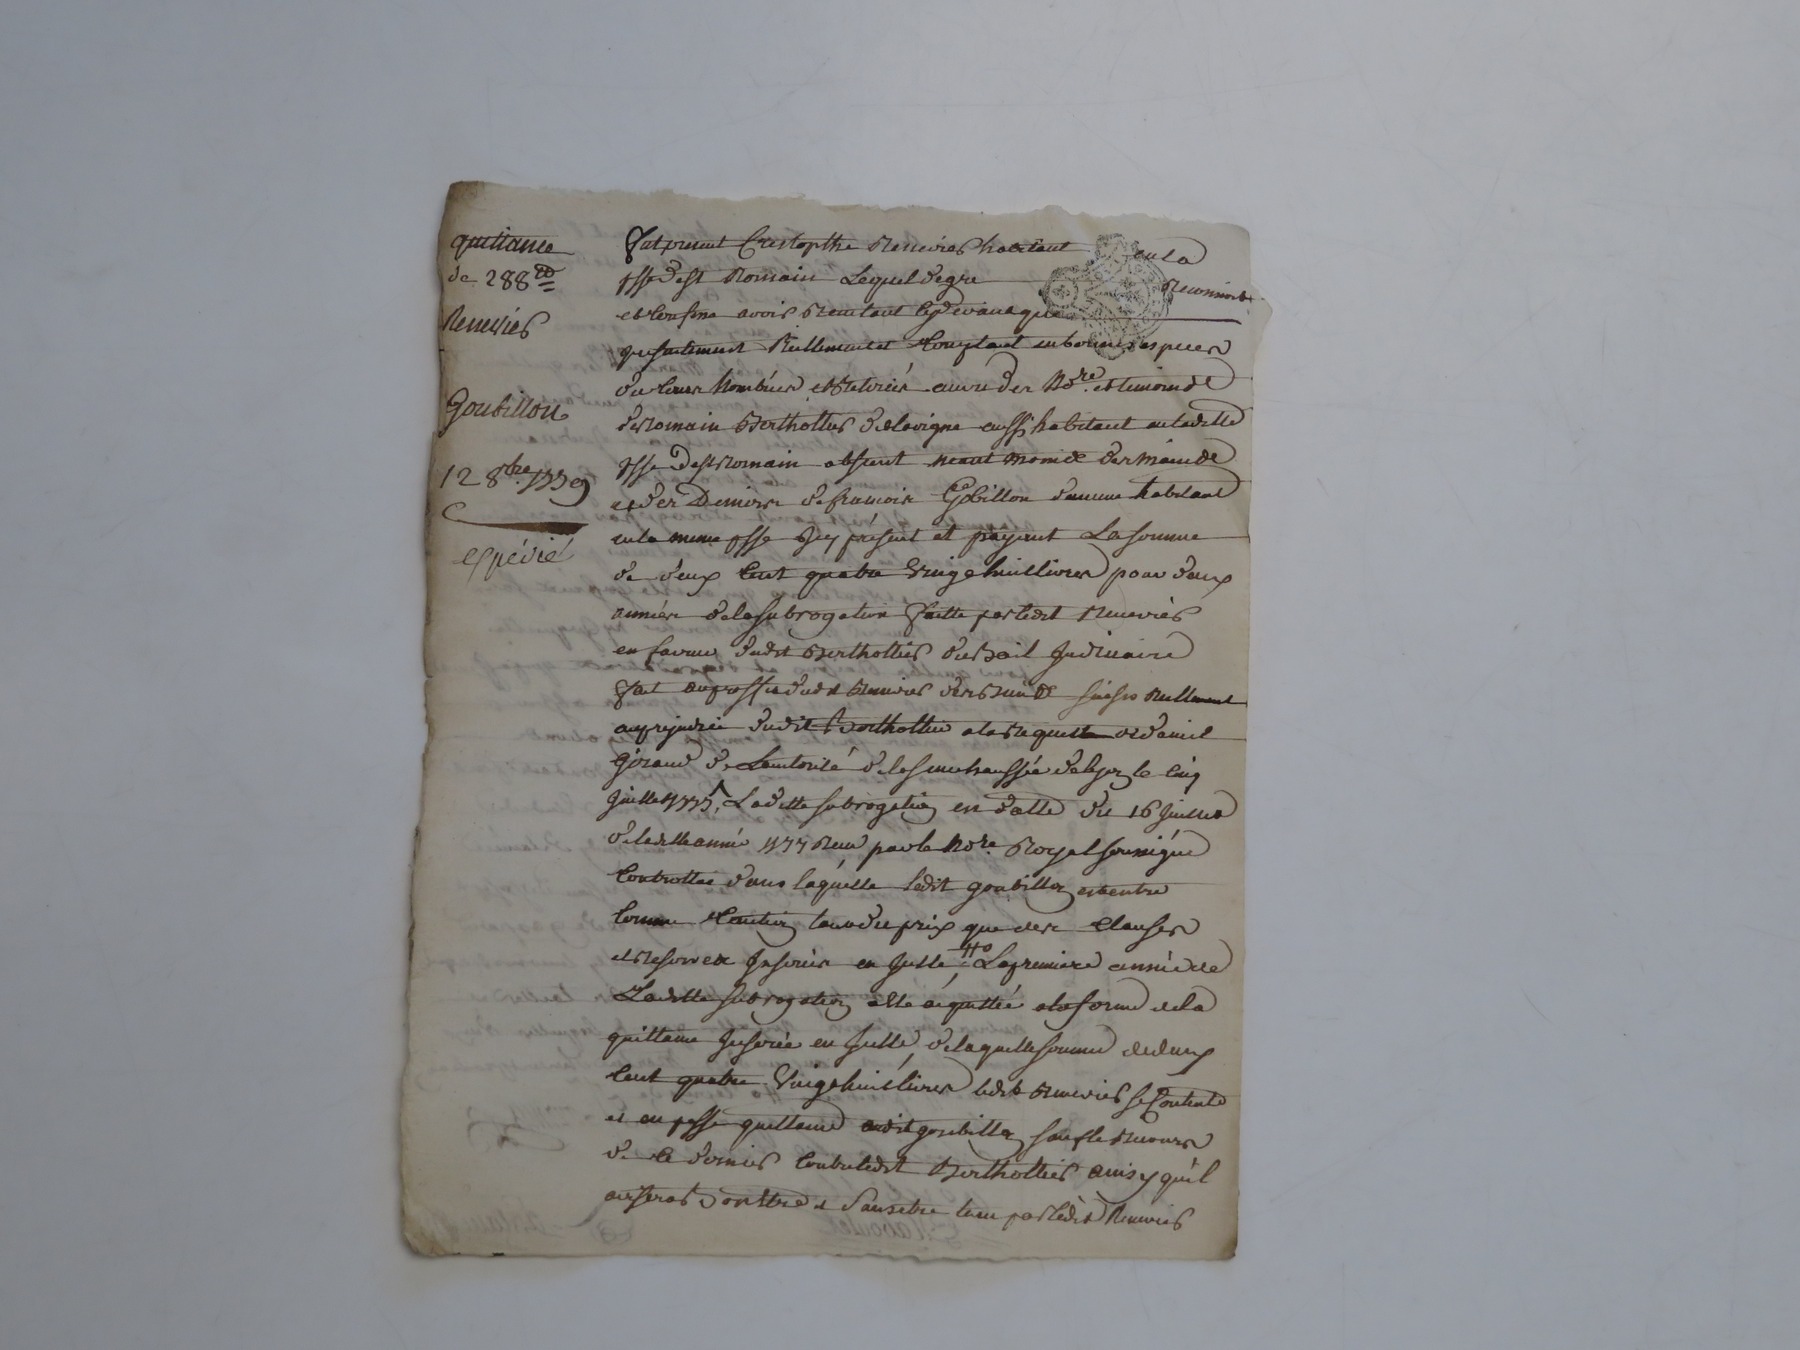 quittance
de 288
Renevier
Goubillon
12 8bre 1779
expédié
fut present Cristopthe Renevier habitant en la
psse de st Romain Lequel de gre Reconnoit
et Confesse avoir Reçu
presentement Reellement et Comptant en bonnes especes
de Cours Nombrées et Retirées au vu des Nore et temoins de
de Romain Berthollier de lavigne aussi habitant en ladette
psse de st Romain absent neant moins de
et des Deniers de francois Gobillon habitant
en la meme psse Icy présent et payant La somme
de deux Cent quatre vingt huit livres pour deux
années de la subrogation faitte par ledit Renevier
en faveur dudit Berthollier du bail Judiciaire
fait au proffit dudit Renevier des saisis Reellement
au prejudice dudit Berthollier a la Requette
Giraud de Lautorité de la senechaussée de le Cinq
Juillet 1777, Laditte subrogation en datte du 16 Juillet
de laditte année 1777 Reçu par le Nore Royal soussigné
Controllée dans laquelle ledit goubillon est entré
Comme Caution tant du prix que des Clauses
et Reserves Inserées en Icelle La premiere année de
Laditte subrogation a été acquittée a la forme de la
quittance Inserée en Icelle de laquelle somme de deux
Cent quatre vingt huit livres ledit Renevier se Contente
et en passe quittance audit goubillon sauf le Recours
de ce dernier Contre ledit Berthollier ainsy qu'il
avisera sans etre tenu par ledit Renevier